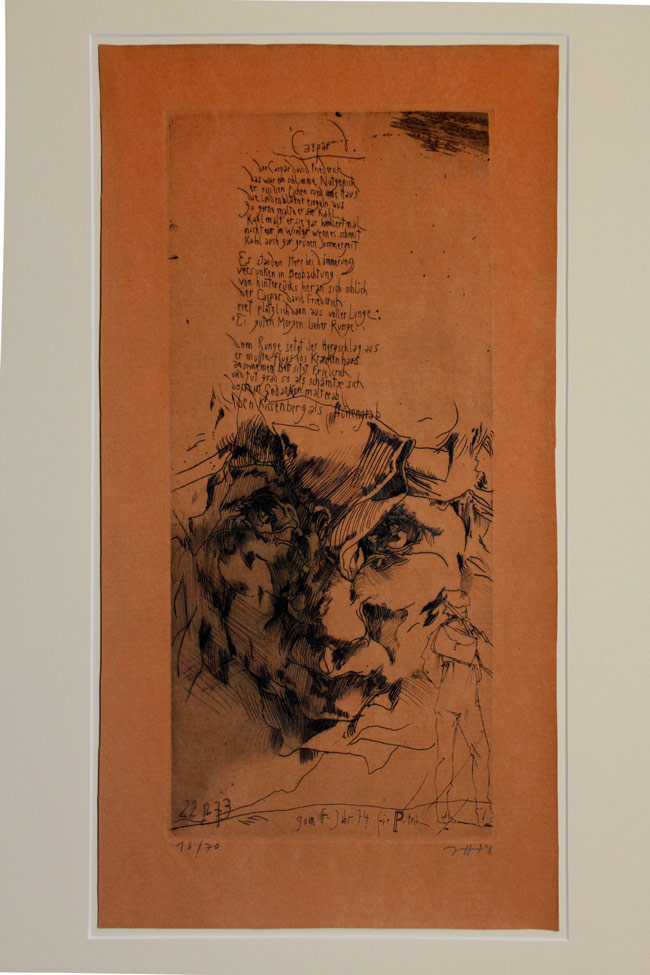 Caspar d.
der Caspar David Friedrich
das war ein schlimme
er riss den Eichen rund ums Haus
die Lindenblätter einzeln aus
zu gerne malte er sie kahl
kahl malt er sie gar hundertmal
nicht nur im Winter wenn es schneit
kahl auch zur grünen Sommerzeit
Es standen Herr bei dämmerung
versunken in Beobachtung
von hinterrücks heran sich schlich
der Caspar david Friedrich
rief plötzlich dann aus voller Lunge:
"Ei guten Morgen lieber Runge
dem Runge setzt der Herzschlag aus
er mußte flugs ins Krankenhaus
an seinem Bett sitzt Friedrich
und tut grad so als schämte sich
doch in Gedanken malt er ab
den Kissenberg als Hünengrab
22 12 73
zum Jahr 74 für Petra
16/70